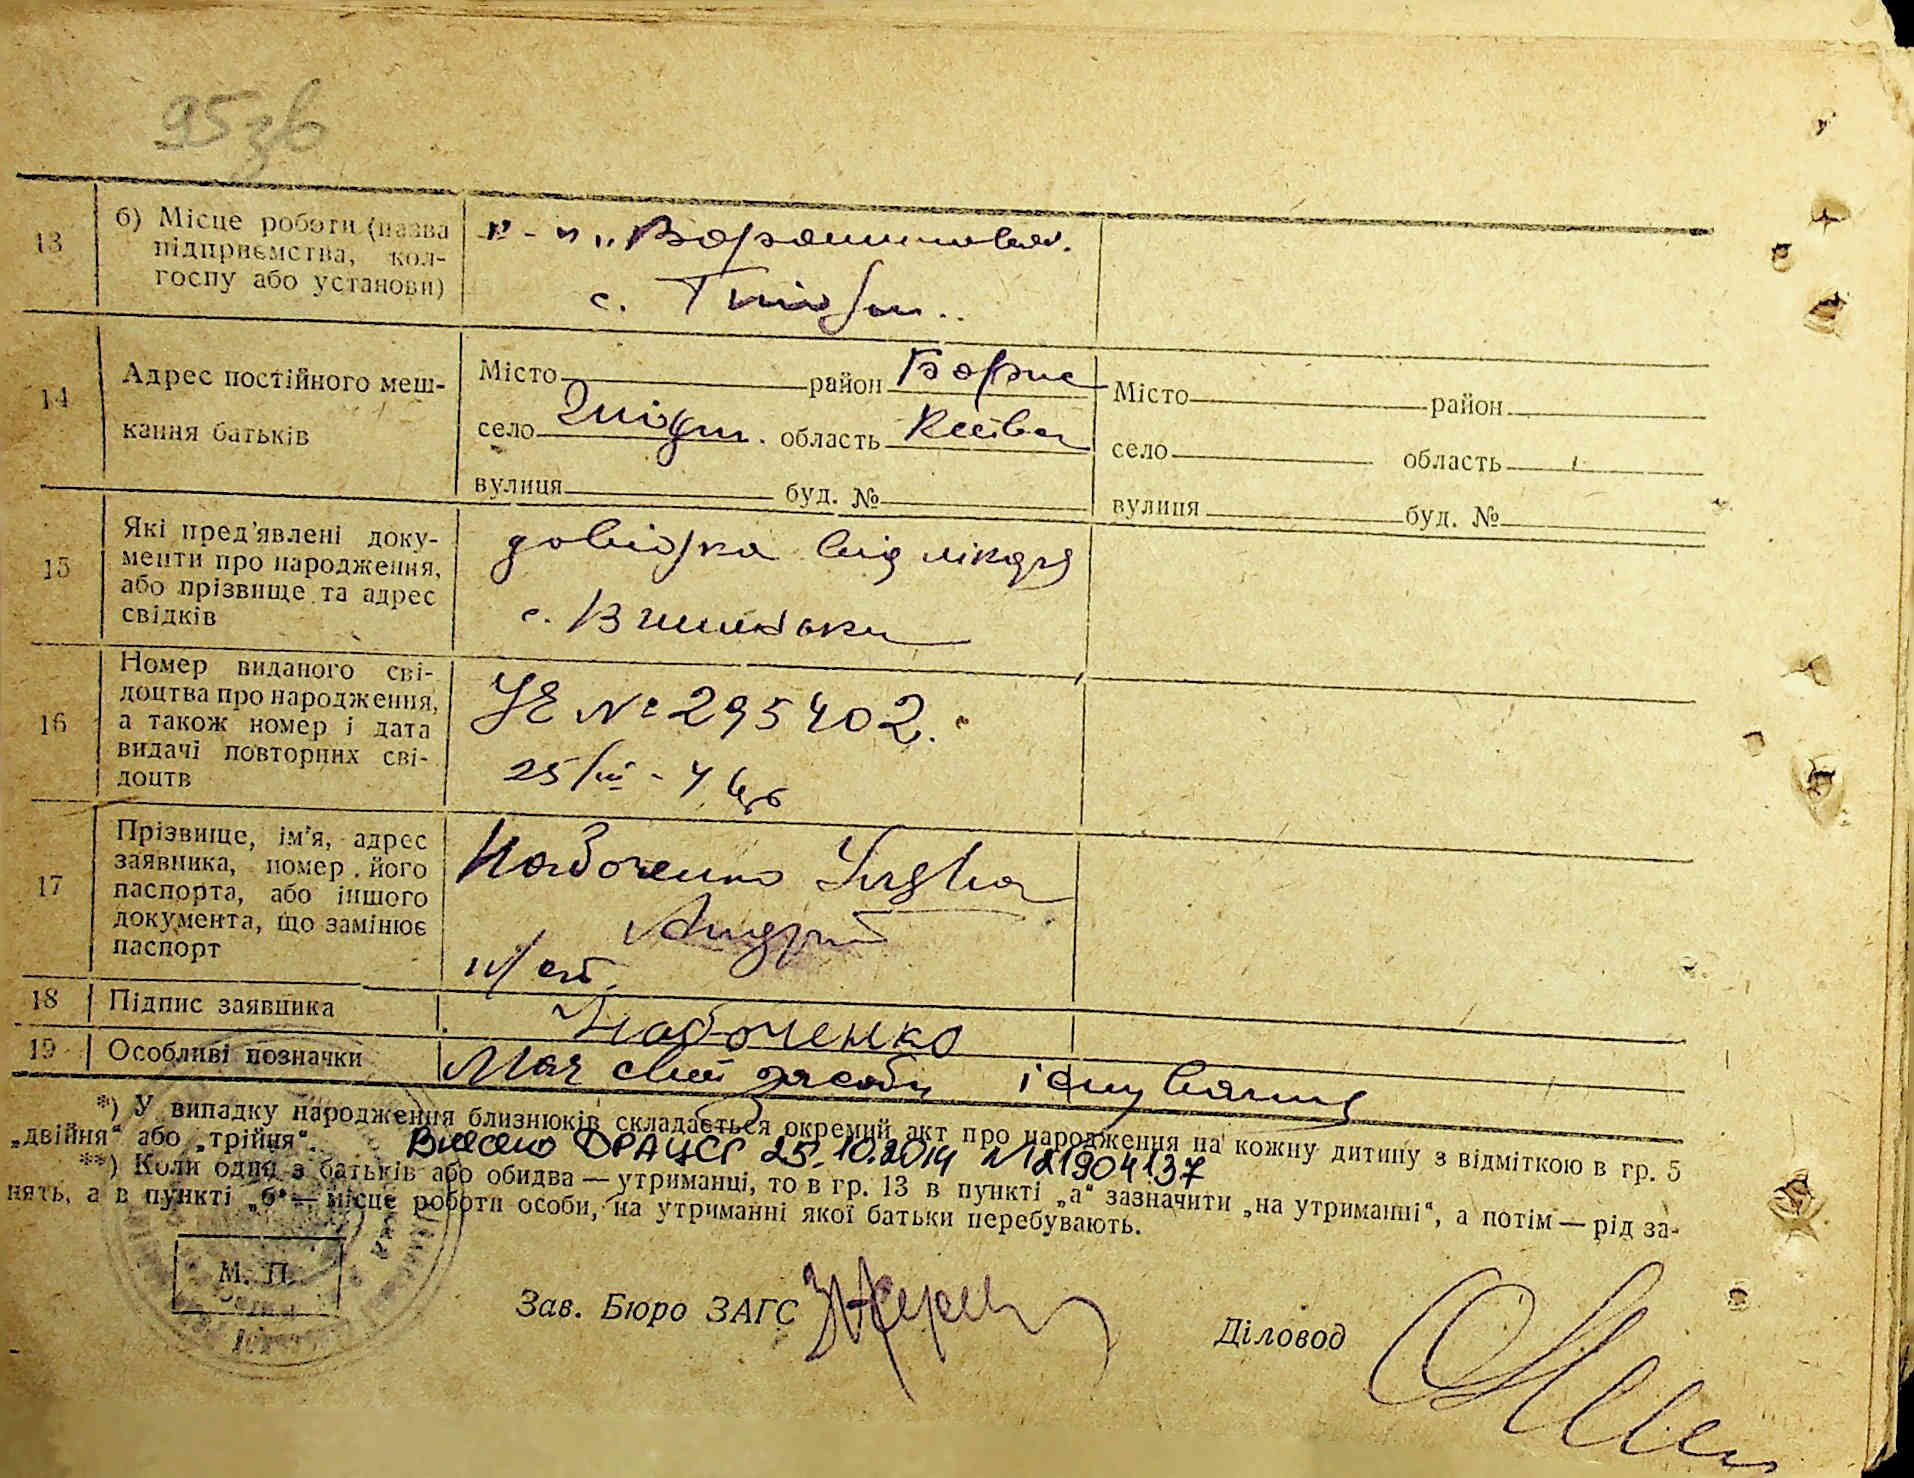 95 зв
13 б) Місце роботи (назва підприємства, колгоспу або установи)
к-п „Ворошилова".
с. Гнідин.
14 Адрес постійного меш-
кання батьків
Місто район Борис
село Гнідин. область Київська
вулиця буд. №
Місто район
село область
вулиця буд. №
15 Які пред'явлені доку-
менти про народження,
або прізвище та адрес
свідків
довідка від лікаря
с. Вишеньки
16 Номер виданого сві-
доцтва про народження,
а також номер і дата
видачі повторних сві-
доцтв
УЕ № 295402.
25/III - 4
17 Прізвище, ім'я, адрес
заявника, номер його
паспорта, або іншого
документа, що замінює
паспорт
Набоченко
18 Підпис заявника
Набоченко
19 Особливі позначки
Має свої засоби існування
*) У випадку народження близнюків складається окремий акт про народження на кожну дитину з відміткою в гр. 5
„двійня" або „трійня".
Внесено ДРАЦСГ 25.10.2014 №21904137
**) Коли один з батьків або обидва — утриманці, то в гр. 13 в пункті „а" зазначити „на утриманні", а потім — рід за-
нять, а в пункті „б" — місце роботи особи, на утриманні якої батьки перебувають.
М. П.
Зав. Бюро ЗАГС
Діловод